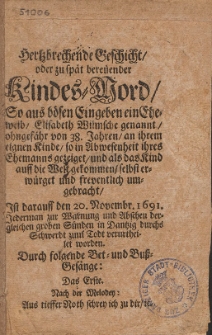 51006
Hertzbrechende Geschicht/
oder zu spät bereüender
Kindes-Mord/
So aus bösen Eingeben ein Ehe-
weib/ Elisabeth Wünsche genannt/
ohngefähr von 38. Jahren/ an ihrem
eignen Kinde/ so in Abwesenheit ihres
Ehemanns gezeiget/ und als das Kind
auff die Welt gekommen/ selbst er-
würget und freventlich um-
gebracht/
Ist darauff den 20. Novembr. 1691.
Jederman zur Warnung und Abscheu der-
gleichen groben Sünden in Dantzig durchs
Schwerdt zum Todt verurthei-
let worden.
Durch folgende Bet- und Buß-
Gesänge:
Das Erste.
Nach der Melodey:
Aus tieffer Noth schrey ich zu dir/ ɾc.